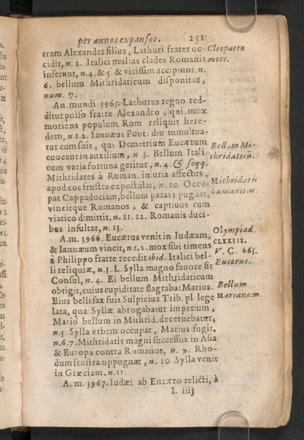 per annos expansos. 251
eram Alexander filius, Lathuri frater oc-
cidit, n. 2. Italici multas clades Romanis
inferunt, n. 4. & 5. & vicissim accipiunt n.
6. bellum Mithridaticum disponitur,
num. 7.
An. mundi 3965. Lathurus regno red-
ditur pulso fratre Alexandro, qui mox
moriens populum Rom reliquit here-
dem, n. 1. 2. Iannæus Pont. diu tumultua-
tur cum suis, qui Demetrium Eucærum
evocant in auxilium, n. 3. Bellum Itali-
cum varia fortuna geritur, n. 4. & seqq.
Mithridates à Roman. iniuria affectus,
apud eos frustra expostulat, n. 10 Occu-
pat Cappadociam, bellum parat: pugnat,
vincitque Romanos, & captiuos cum
viatico dimittit, n. 11. 12. Romanis duci-
bus insultat, n. 13.
A. m. 3966. Eucærus venit in Iudæam,
& Iannæum vincit, n. 1. 2. mox sibi timens
à Philippo fratre recedit ibid. Italici bel-
li reliquiæ, n. 3. L. Sylla magno fauore fit
Consul, n. 4. Ei bellum Mithridaticum
obtigit, cuius cupiditate flagrabat Marius.
Eius bellis fax fuit Sulpicius Trib. pl. lege
lata, qua Syllæ abrogabatur imperium,
Mario bellum in Mithrid. decernebatur,
n. 5. Sylla vrbem occupat, Marius fugit,
n. 6. 7. Mithridatis magni successus in Asia
& Europa contra Romanos, n. 7. Rho-
dum frustra oppugnat, n. 10 Sylla venit
in Græciam. n. 11.
A. m. 3967. Iudæi ab Eucæro relicti, à
L iiij
Cleopatra
mors.
Bellum Mi-
thridaticum.
Mithridatis
humanitas.
Olympiad.
CLXXIII.
V. C. 665.
Eucærus.
Bellum
Marianum.